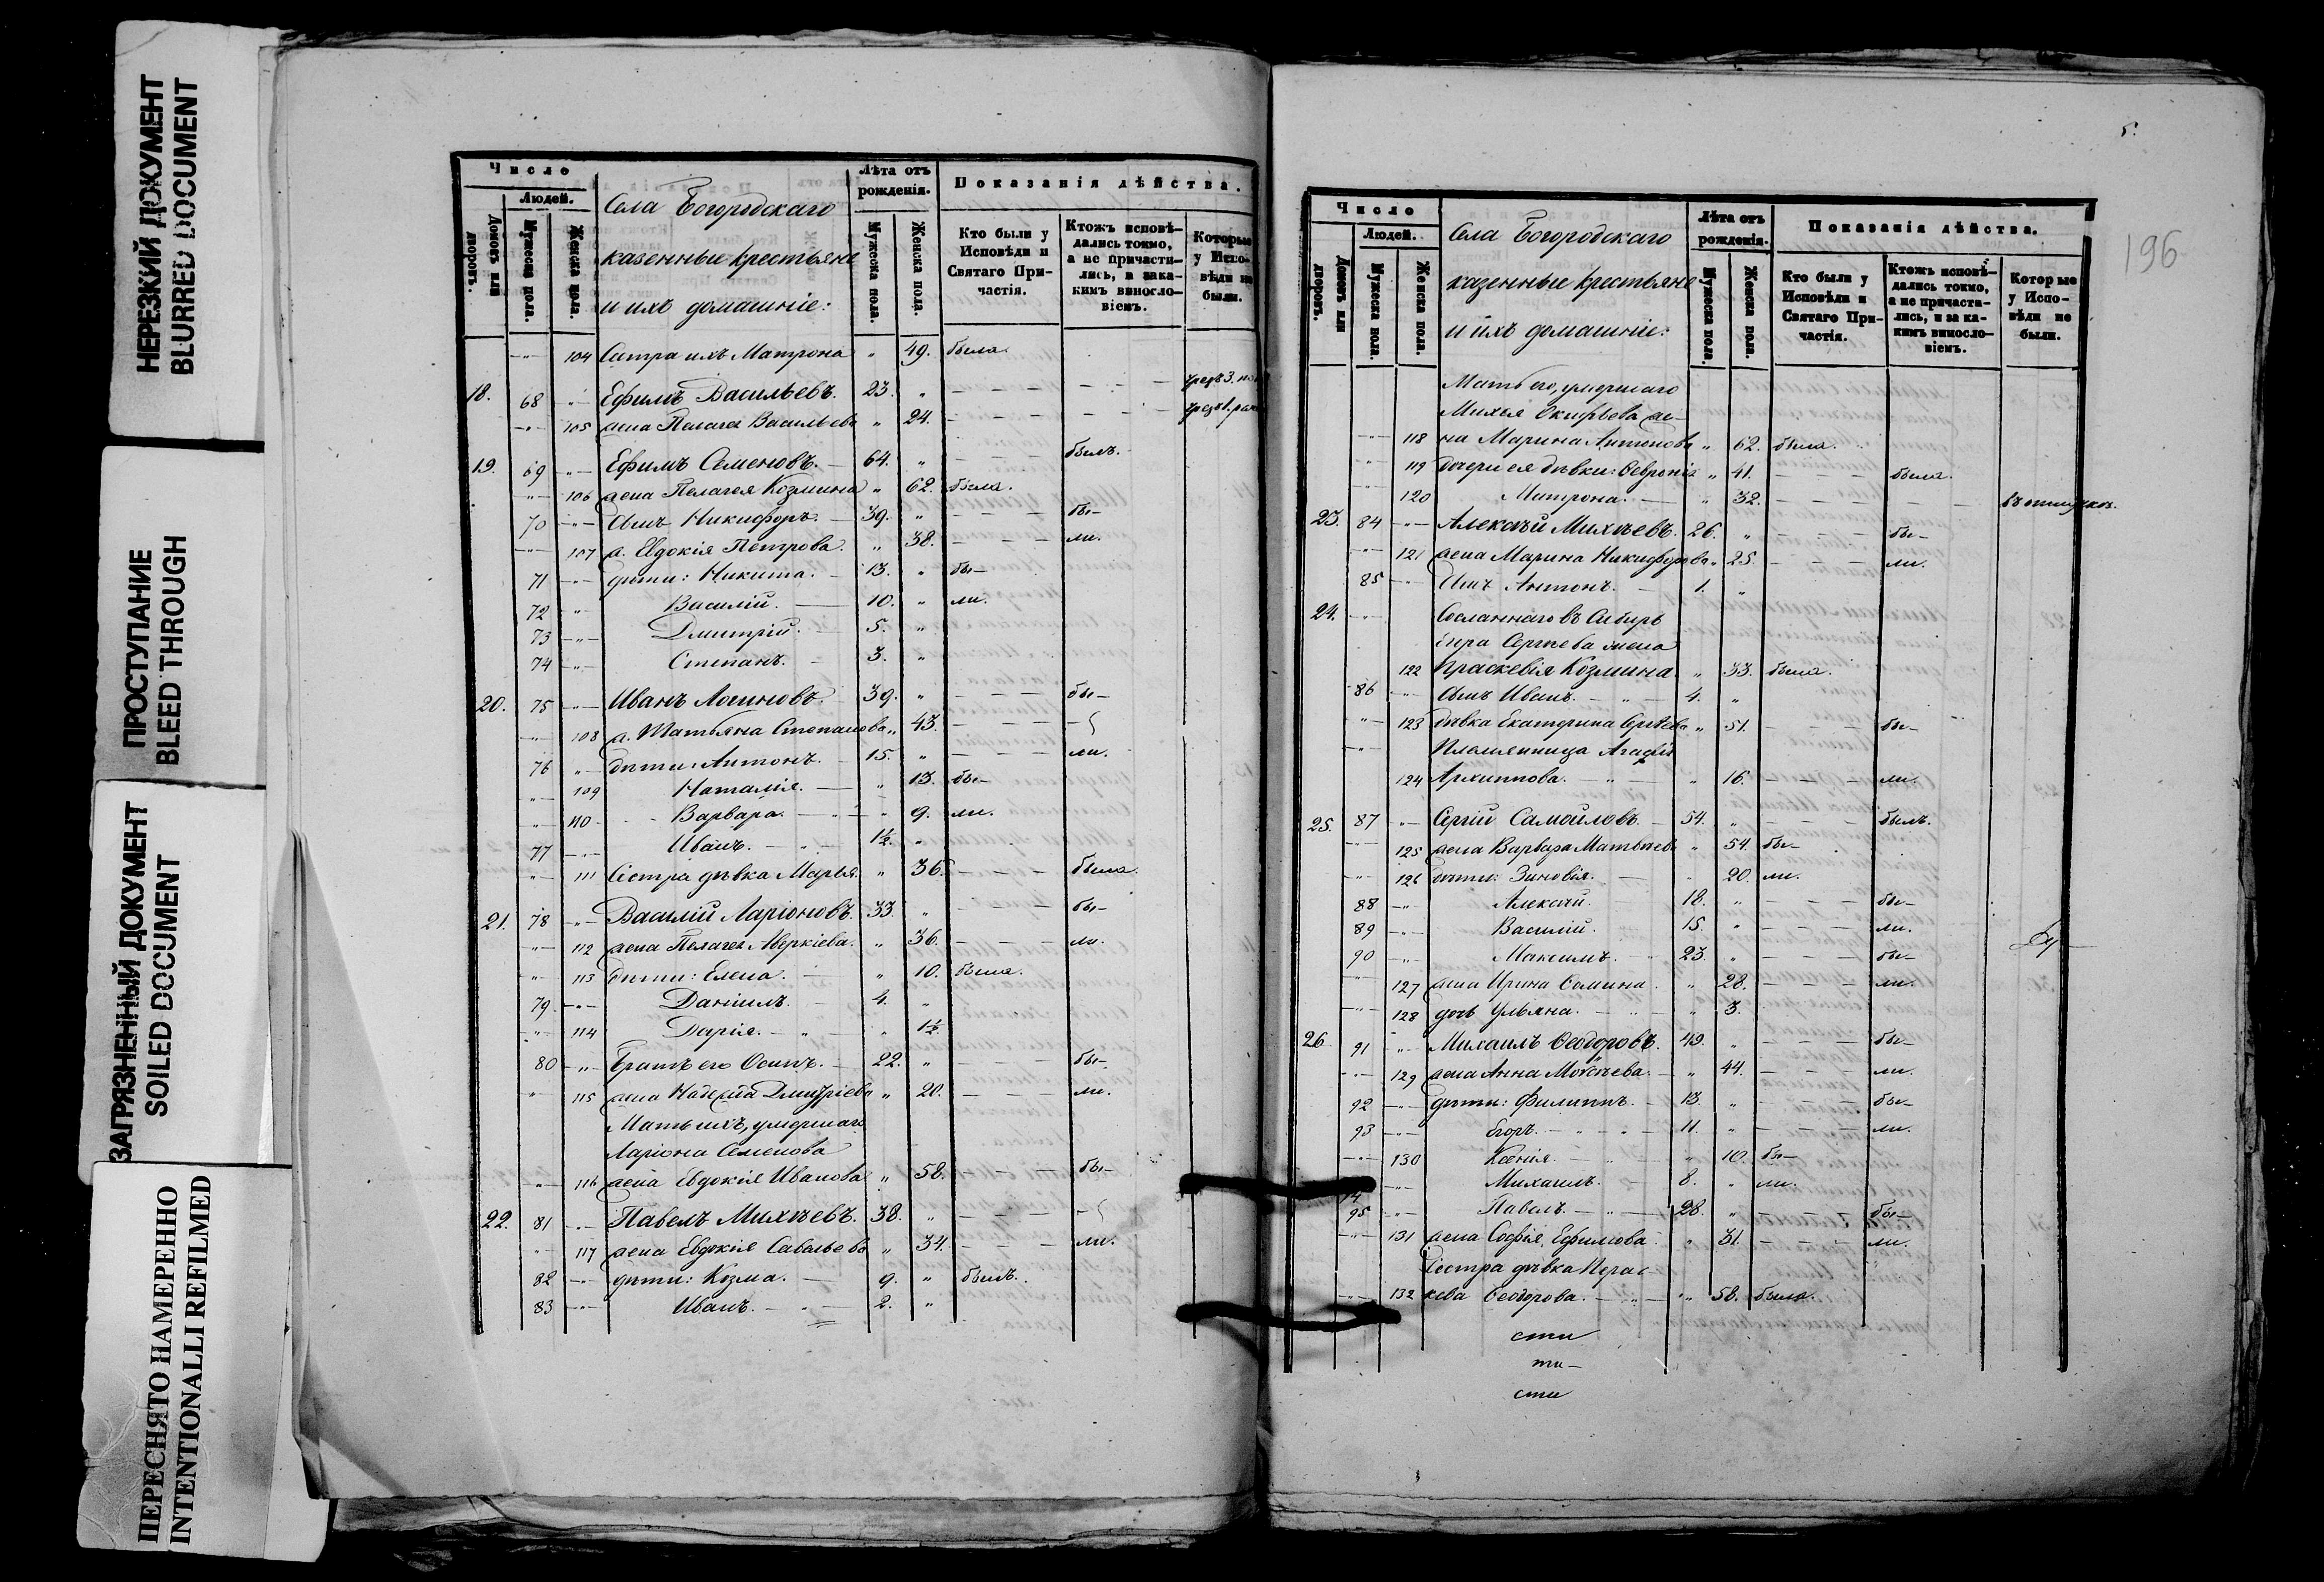 НЕРЕЗКИЙ ДОКУМЕНТ
BLURRED DOCUMENT
ПРОСТУПАНИЕ
BLEED THROUGH
ЗАГРЯЗНЕННЫЙ ДОКУМЕНТ
SOILED DOCUMENT
ПЕРЕСНЯТО НАМЕРЕННО
INTENTIONALLI REFILMED
Число
Людей.
Домовъ или дворовъ.
Мужеска пола.
Женска пола.
Села Богородскаго
казенные крестьяне
и ихъ домашніе:
Лѣта отъ рожденія.
Мужеска пола.
Женска пола.
Показанія дѣйства.
Кто были у Исповѣди и Святаго Причастія.
Ктожъ исповѣдались токмо, а не причастились, и за какимъ винословіемъ.
Которые у Исповѣди не были.
-"- 104 Сестра ихъ Матрона " 49. была.
18. 68 -"- Ефимъ Васильевъ. 23. " - - - - -
-"- 105 жена Пелагея Васильева " 24. - - - - -
19. 69 -"- Ефимъ Семеновъ. 64. " - - былъ.
-"- 106 жена Пелагея Козмина " 62. была.
70 -"- Сынъ Никифоръ. 39. " - - - бы-
-"- 107 ж. Евдокія Петрова. " 38. - - - ли.
71 -"- дѣти: Никита. 13. " бы-
72 -"- Василій. 10. " ли.
73 -"- Дмитрій. 5. "
74 -"- Степанъ. 3. "
20. 75 -"- Иванъ Логиновъ. 39. " - - - бы-
-"- 108 ж. Татьяна Степанова " 43. - - -
76 "- дѣти: Антонъ. 15. " - - - ли.
"- 109 Наталія. " 13. бы-
"- 110 Варвара. " 9. ли.
77 -"- Иванъ. 1½. "
"- 111 Сестра дѣвка Марья. " 36. - - - была.
21. 78 -"- Василій Ларіоновъ. 33. " - - - бы-
-"- 112 жена Пелагея Аверкіева. " 36. - - - ли.
-"- 113 дѣти: Елена. " 10. была.
79 -"- Даніилъ. 4. "
-"- 114 Дарія. " 1½.
80 -"- Братъ его Осипъ. 22. " - - - бы-
-"- 115 жена Надежда Дмитріева " 20. - - - ли.
Мать ихъ, умершаго
Ларіона Семенова
"- 116 жена Евдокія Иванова " 58. - - - бы-
22. 81 -"- Павелъ Михѣевъ. 38. " - - -
-"- 117 жена Евдокія Савельева " 34. - - - ли.
82 -"- дѣти: Козма. 9. " былъ.
83 -"- Иванъ. 2. "
5.
196
Число
Людей.
Домовъ или дворовъ.
Мужеска пола.
Женска пола.
Села Богородскаго
казенные крестьяне
и ихъ домашніе:
Лѣта отъ рожденія.
Мужеска пола.
Женска пола.
Показанія дѣйства.
Кто были у Исповѣди и Святаго Причастія.
Ктожъ исповѣдались токмо, а не причастились, и за какимъ винословіемъ.
Которые у Исповѣди не были.
Мать его, умершаго
Михея
-"- 118 на Марина Антонова " 62. была.
-"- 119 дочери ея дѣвки: Февронія " 41. - - - была.
-"- 120 Матрона. " 32. - - - - -
23. 84 -"- Алексѣй Михѣевъ. 26. " - - - бы-
-"- 121 жена Марина Никифорова " 25. - - - ли.
85 -"- Сынъ Антонъ. 1. "
24. -"- Сосланнаго въ Сибирь
Сергѣева жена
122 Праскевія Козмина. " 33. была.
86 -"- Сынъ Иванъ. 4. "
-"- 123 дѣвка Екатерина " 51. - - - бы-
-"- Племянница Агафія
124 Архиппова. " 16. - - - ли.
25. 87 -"- Сергій Самойловъ. 54. " - - - былъ.
-"- 125 жена Варвара Матвѣева " 54. бы-
-"- 126 дѣти: Зиновія. " 20. ли.
88 -"- Алексѣй. 18. " - - - бы-
89 -"- Василій. 15. " - - - ли.
90 -"- Максимъ. 23. " - - - бы-
-"- 127 жена Ирина Сомина. " 28. - - - ли.
-"- 128 дочь Ульяна. " 3.
26. 91 -"- Михаилъ Ѳеодоровъ. 49. " - - - бы-
-"- 129 жена Анна Моѵсеева. " 44. - - - ли.
92 -"- дѣти: Филиппъ. 13. " - - - бы-
93 -"- Егоръ. 11. " - - - ли.
-"- 130 Ксенія. " 10. бы-
-"- Михаилъ. 8. " ли.
95 -"- Павелъ. 28. " бы-
-"- 131 жена Софія Ефимова. " 31. - - - ли.
Сестра дѣвка Парас-
-"- 132 кева Ѳеодорова. " 58. была.
сти
ти-
сти